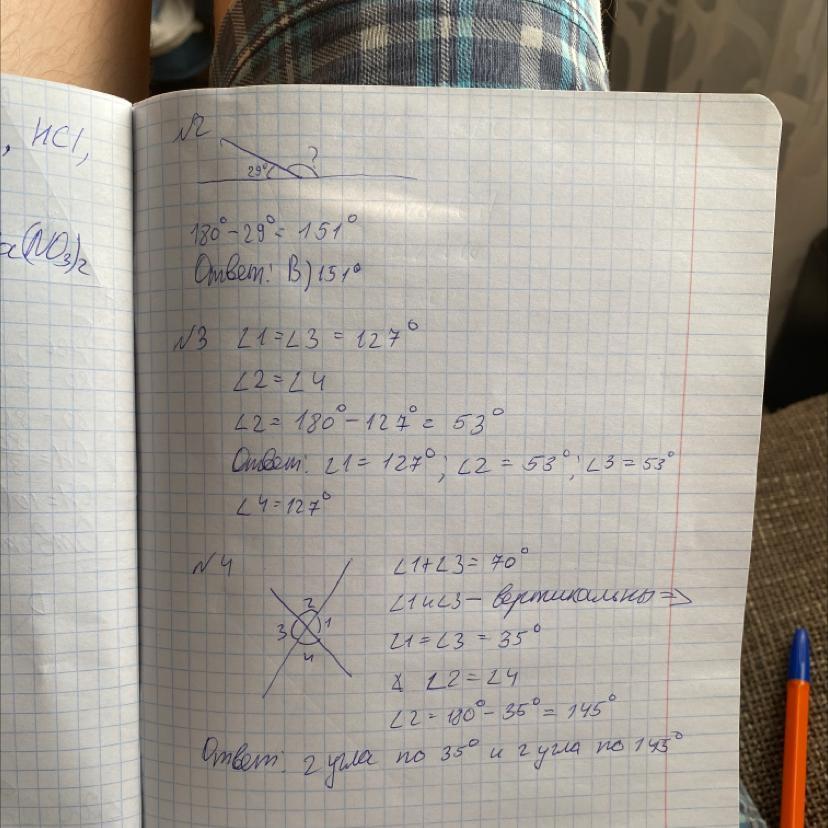 , HCl,
a(NO₃)₂
№2
29° ?
180° - 29° = 151°
Ответ: В) 151°
№3 ∠1 = ∠3 = 127°
∠2 = ∠4
∠2 = 180° - 127° = 53°
Ответ: ∠1 = 127°; ∠2 = 53°; ∠3 = 53°
∠4 = 127°
№4
2
3 1
4
∠1 + ∠3 = 70°
∠1 и ∠3 – вертикальны =>
∠1 = ∠3 = 35°
∠2 = ∠4
∠2 = 180° - 35° = 145°
Ответ: 2 угла по 35° и 2 угла по 145°